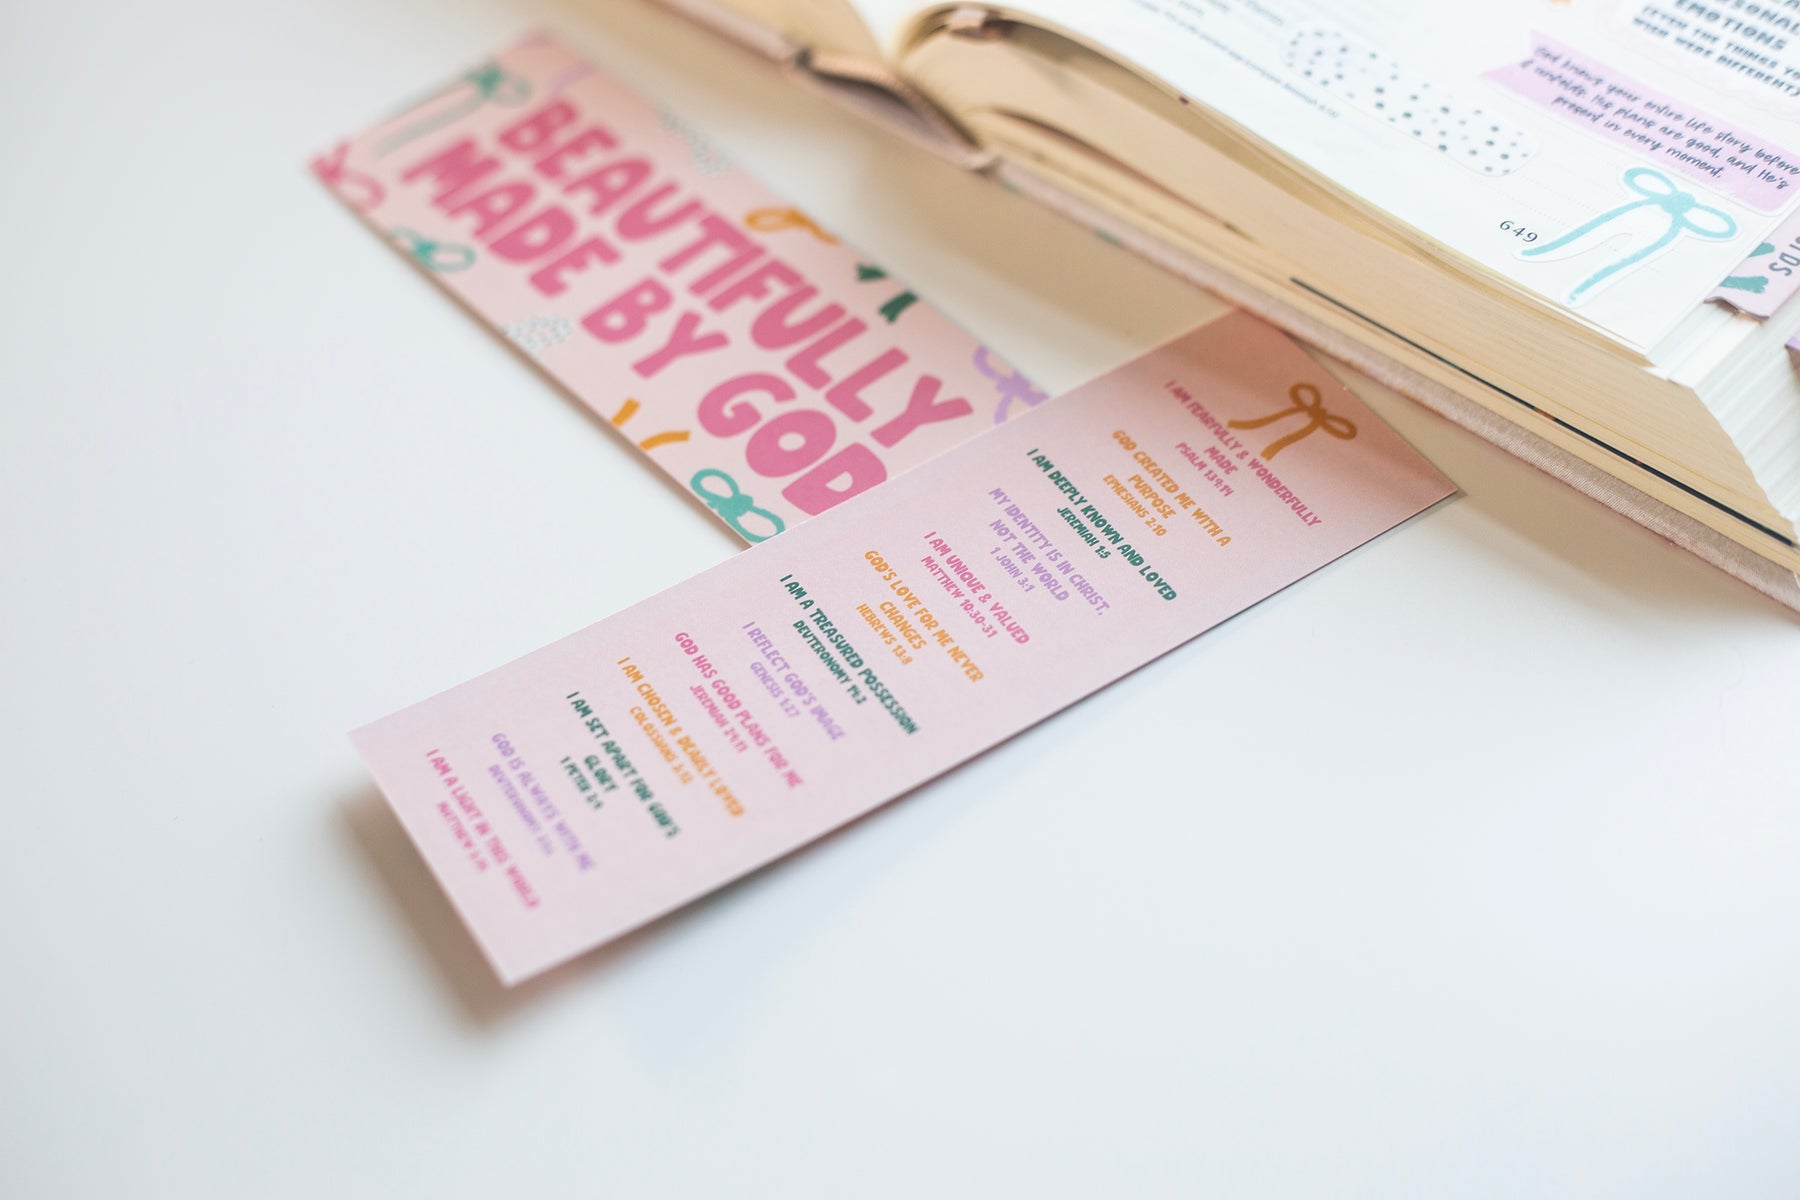 BEAUTIFULLY
MADE BY GOD
I AM FEARFULLY & WONDERFULLY
MADE
PSALM 139:14
GOD CREATED ME WITH A
PURPOSE
EPHESIANS 2:10
I AM DEEPLY KNOWN AND LOVED
JEREMIAH 1:5
MY IDENTITY IS IN CHRIST,
NOT THE WORLD
1 JOHN 3:1
I AM UNIQUE & VALUED
MATTHEW 10:30-31
GOD'S LOVE FOR ME NEVER
CHANGES
HEBREWS 13:8
I AM A TREASURED POSSESSION
DEUTERONOMY 14:2
I REFLECT GOD'S IMAGE
GENESIS 1:27
GOD HAS GOOD PLANS FOR ME
JEREMIAH 29:11
I AM CHOSEN & DEARLY LOVED
COLOSSIANS 3:12
I AM SET APART FOR GOD'S
GLORY
1 PETER 2:9
GOD IS ALWAYS WITH ME
DEUTERONOMY
I AM A LIGHT IN THIS WORLD
MATTHEW
EMOTIONS
(EVEN THE THINGS YO
WISH WERE DIFFERENT)
God knows your entire life story before
it unfolds. His plans are good, and He's
present in every moment.
649